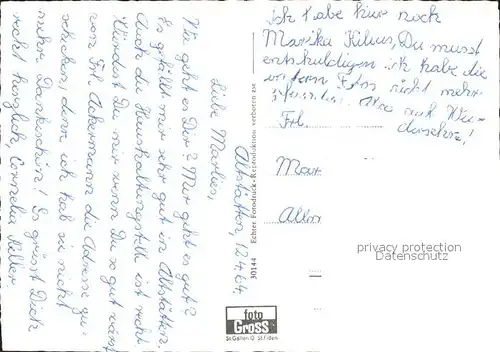 Altstätten, 12.4.64.
Liebe Marlies,
Wie geht es Dir? Mir geht es gut?
Es gefällt mir sehr gut in Altstätten.
Auch die Haushaltungsstelle ist recht
Würdest Du mir wenn Du so gut wärst
von Frl. Ackermann die Adresse zu-
schicken, denn ich hab sie nicht
mehr. Dankeschön! Es grüsst Dich
recht herzlich, Cornelia
Ich habe nur noch
Marika Kilius, Du musst
entschuldigen ich habe die
andern Fotos nicht mehr
Also auf Wie-
dersehn!
Frl.
Mar
Echter Fotodruck · Reproduktion verboten
30144
foto
Gross
St. Gallen O St. Fiden
privacy protection
Datenschutz